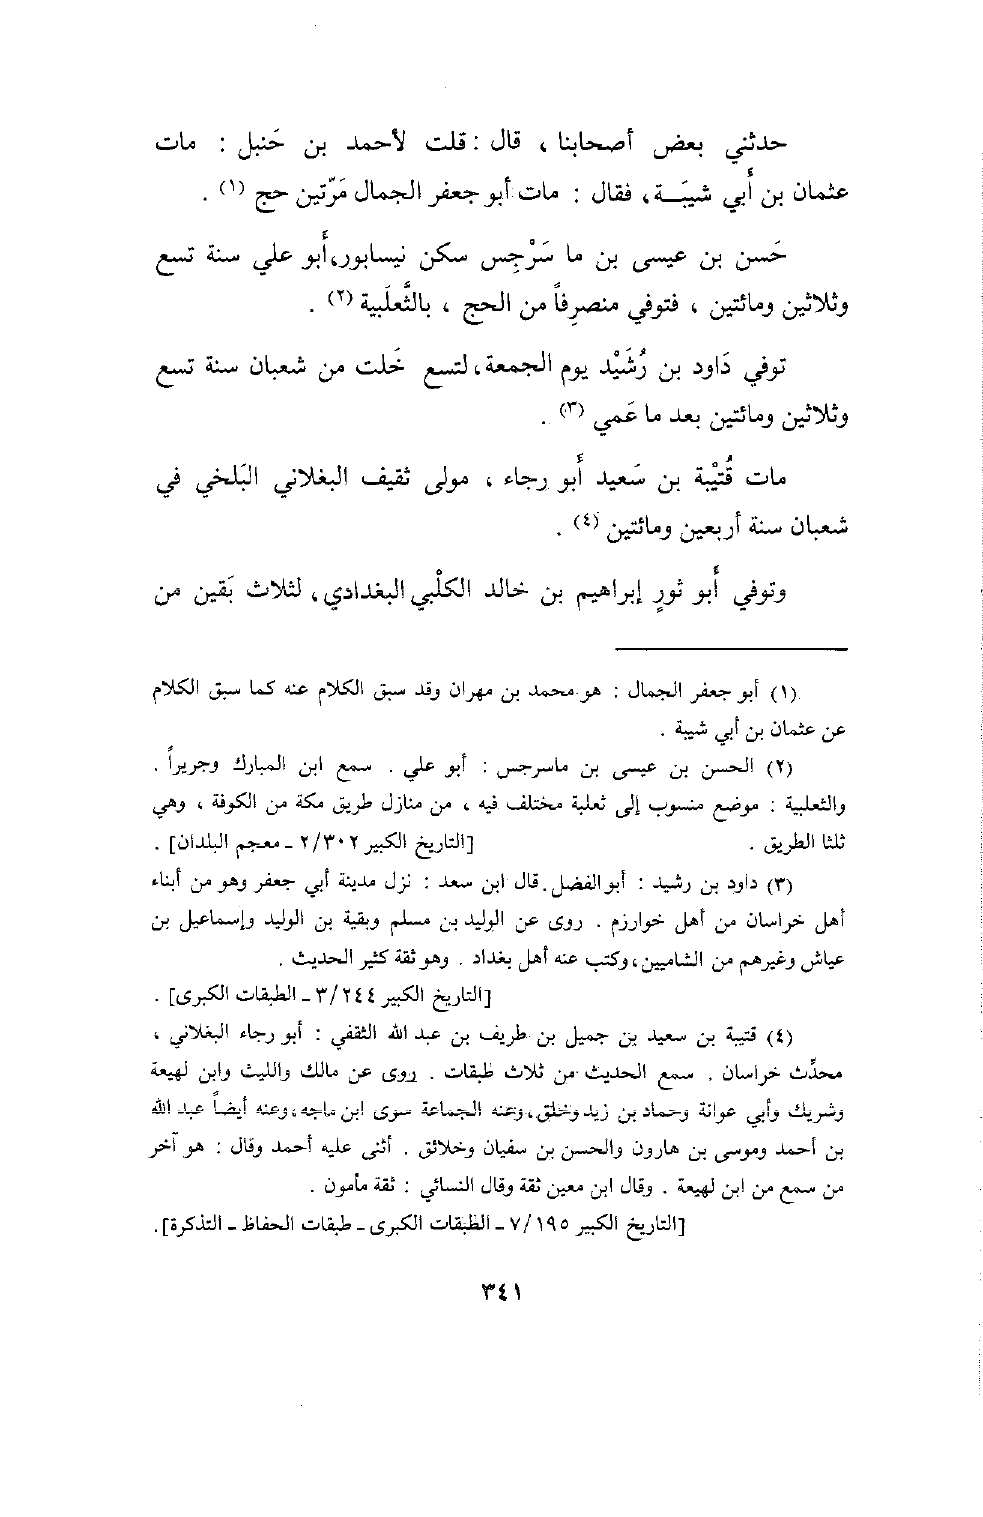 حدثني بعض أصحابنا ، قال : قلت لأحمد بن حَنبل : مات
عثمان بن أَبي شيبَـة ، فقال : مات أبو جعفر الجمال مَرّتين حج (١) .
حَسن بن عيسى بن ما سَرْجِس سكن نيسابور،أَبو علي سنة تسع
وثلاثين ومائتين ، فتوفي منصرِفاً من الحج ، بالثَّعلَبية (٢) .
توفي دَاود بن رُشَيْد يوم الجمعة، لتسع خَلت من شعبان سنة تسع
وثلاثين ومائتين بعد ما عَمي (٣) .
مات قُتَيْبة بن سَعيد أَبو رجاء ، مولى ثقيف البغلاني البَلخي في
شعبان سنة أربعين ومائتين (٤) .
وتوفي أَبو ثورٍ إبراهيم بن خالد الكلْبي البغدادي، لثلاث بَقين من
(١) أبو جعفر الجمال : هو محمد بن مهران وقد سبق الكلام عنه كما سبق الكلام
عن عثمان بن أبي شيبة .
(٢) الحسن بن عيسى بن ماسرجس : أبو علي . سمع ابن المبارك وجريراً .
والثعلبية : موضع منسوب إلى ثعلبة مختلف فيه ، من منازل طريق مكة من الكوفة ، وهي
ثلثا الطريق . [التاريخ الكبير ٢/٣٠٢ ـ معجم البلدان] .
(٣) داود بن رشيد : أبو الفضل . قال ابن سعد : نزل مدينة أبي جعفر وهو من أبناء
أهل خراسان من أهل خوارزم . روى عن الوليد بن مسلم وبقية بن الوليد وإسماعيل بن
عياش وغيرهم من الشاميين، وكتب عنه أهل بغداد . وهو ثقة كثير الحديث .
[التاريخ الكبير ٣/٢٤٤ ـ الطبقات الكبرى] .
(٤) قتيبة بن سعيد بن جميل بن طريف بن عبد الله الثقفي : أبو رجاء البغلاني ،
محدِّث خراسان . سمع الحديث من ثلاث طبقات . روى عن مالك والليث وابن لهيعة
وشريك وأبي عوانة وحماد بن زيد وخلق، وعنه الجماعة سوى ابن ماجه، وعنه أيضاً عبد الله
بن أحمد وموسى بن هارون والحسن بن سفيان وخلائق . أثنى عليه أحمد وقال : هو آخر
من سمع من ابن لهيعة . وقال ابن معين ثقة وقال النسائي : ثقة مأمون .
[التاريخ الكبير ٧/١٩٥ ـ الطبقات الكبرى ـ طبقات الحفاظ ـ التذكرة].
٣٤١